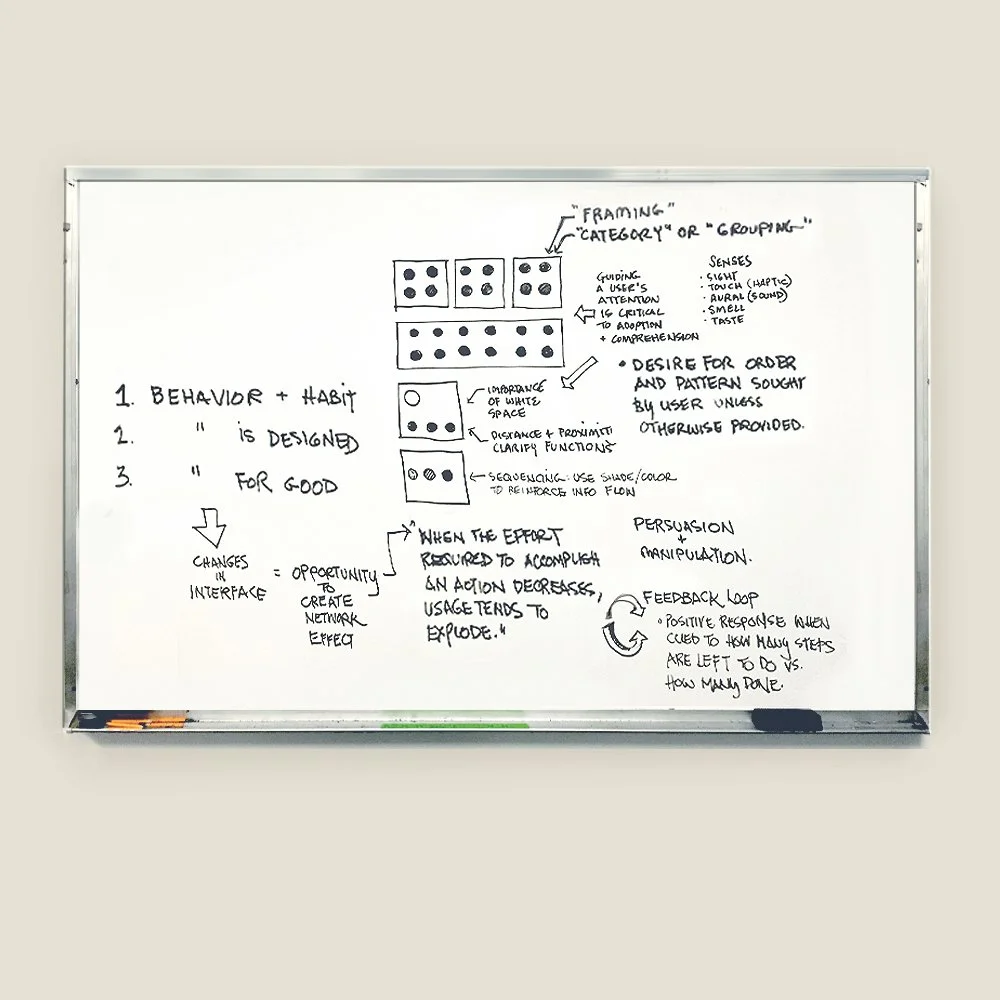 "FRAMING"
"CATEGORY" OR "GROUPING"
GUIDING
A USER'S
ATTENTION
IS CRITICAL
TO ADOPTION
+ COMPREHENSION
SENSES
· SIGHT
· TOUCH (HAPTIC)
· AURAL (SOUND)
· SMELL
· TASTE
• DESIRE FOR ORDER
AND PATTERN SOUGHT
BY USER UNLESS
OTHERWISE PROVIDED.
IMPORTANCE
OF WHITE
SPACE
DISTANCE + PROXIMITI
CLARIFY FUNCTIONS
SEQUENCING: USE SHADE/COLOR
TO REINFORCE INFO FLOW
1. BEHAVIOR + HABIT
2. " IS DESIGNED
3. " FOR GOOD
CHANGES
IN
INTERFACE
= OPPORTUNITY
TO
CREATE
NETWORK
EFFECT
"WHEN THE EFFORT
REQUIRED TO ACCOMPLISH
AN ACTION DECREASES,
USAGE TENDS TO
EXPLODE."
PERSUASION
+
MANIPULATION.
FEEDBACK LOOP
• POSITIVE RESPONSE WHEN
CUED TO HOW MANY STEPS
ARE LEFT TO DO VS.
HOW MANY DONE.